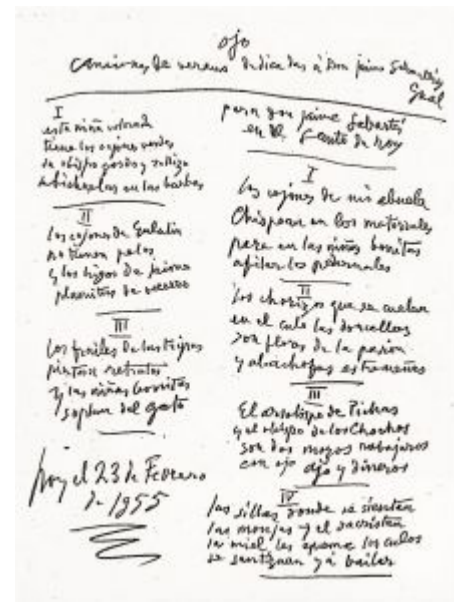 ojo
Canciones de verano dedicadas a Don Jaime Sabartés
Gual
I
esta niña colorada
tiene los cojones verdes
de obispo gordo y
en las barbas
II
los cojones de
no tienen pelos
y los higos de
de
III
los de las tripas
pintan retratos
y las niñas bonitas
soplan del gato
hoy el 23 de Febrero
de 1955
para don jaime Sabartés
en el Santo de hoy
I
los cojones de mi abuela
chispean en los matorrales
para en las niñas bonitas
afilar los pedernales
II
los chorizos que se cuelan
en el culo las doncellas
son flores de la pasión
y alcachofas estremeñas
III
El arzobispo de Pichas
y el obispo de los Chochos
son dos majos
con ojo ajo y dineros
IV
las sillas donde se sientan
las monjas y el sacristán
la miel les los culos
se santiguan y a bailar